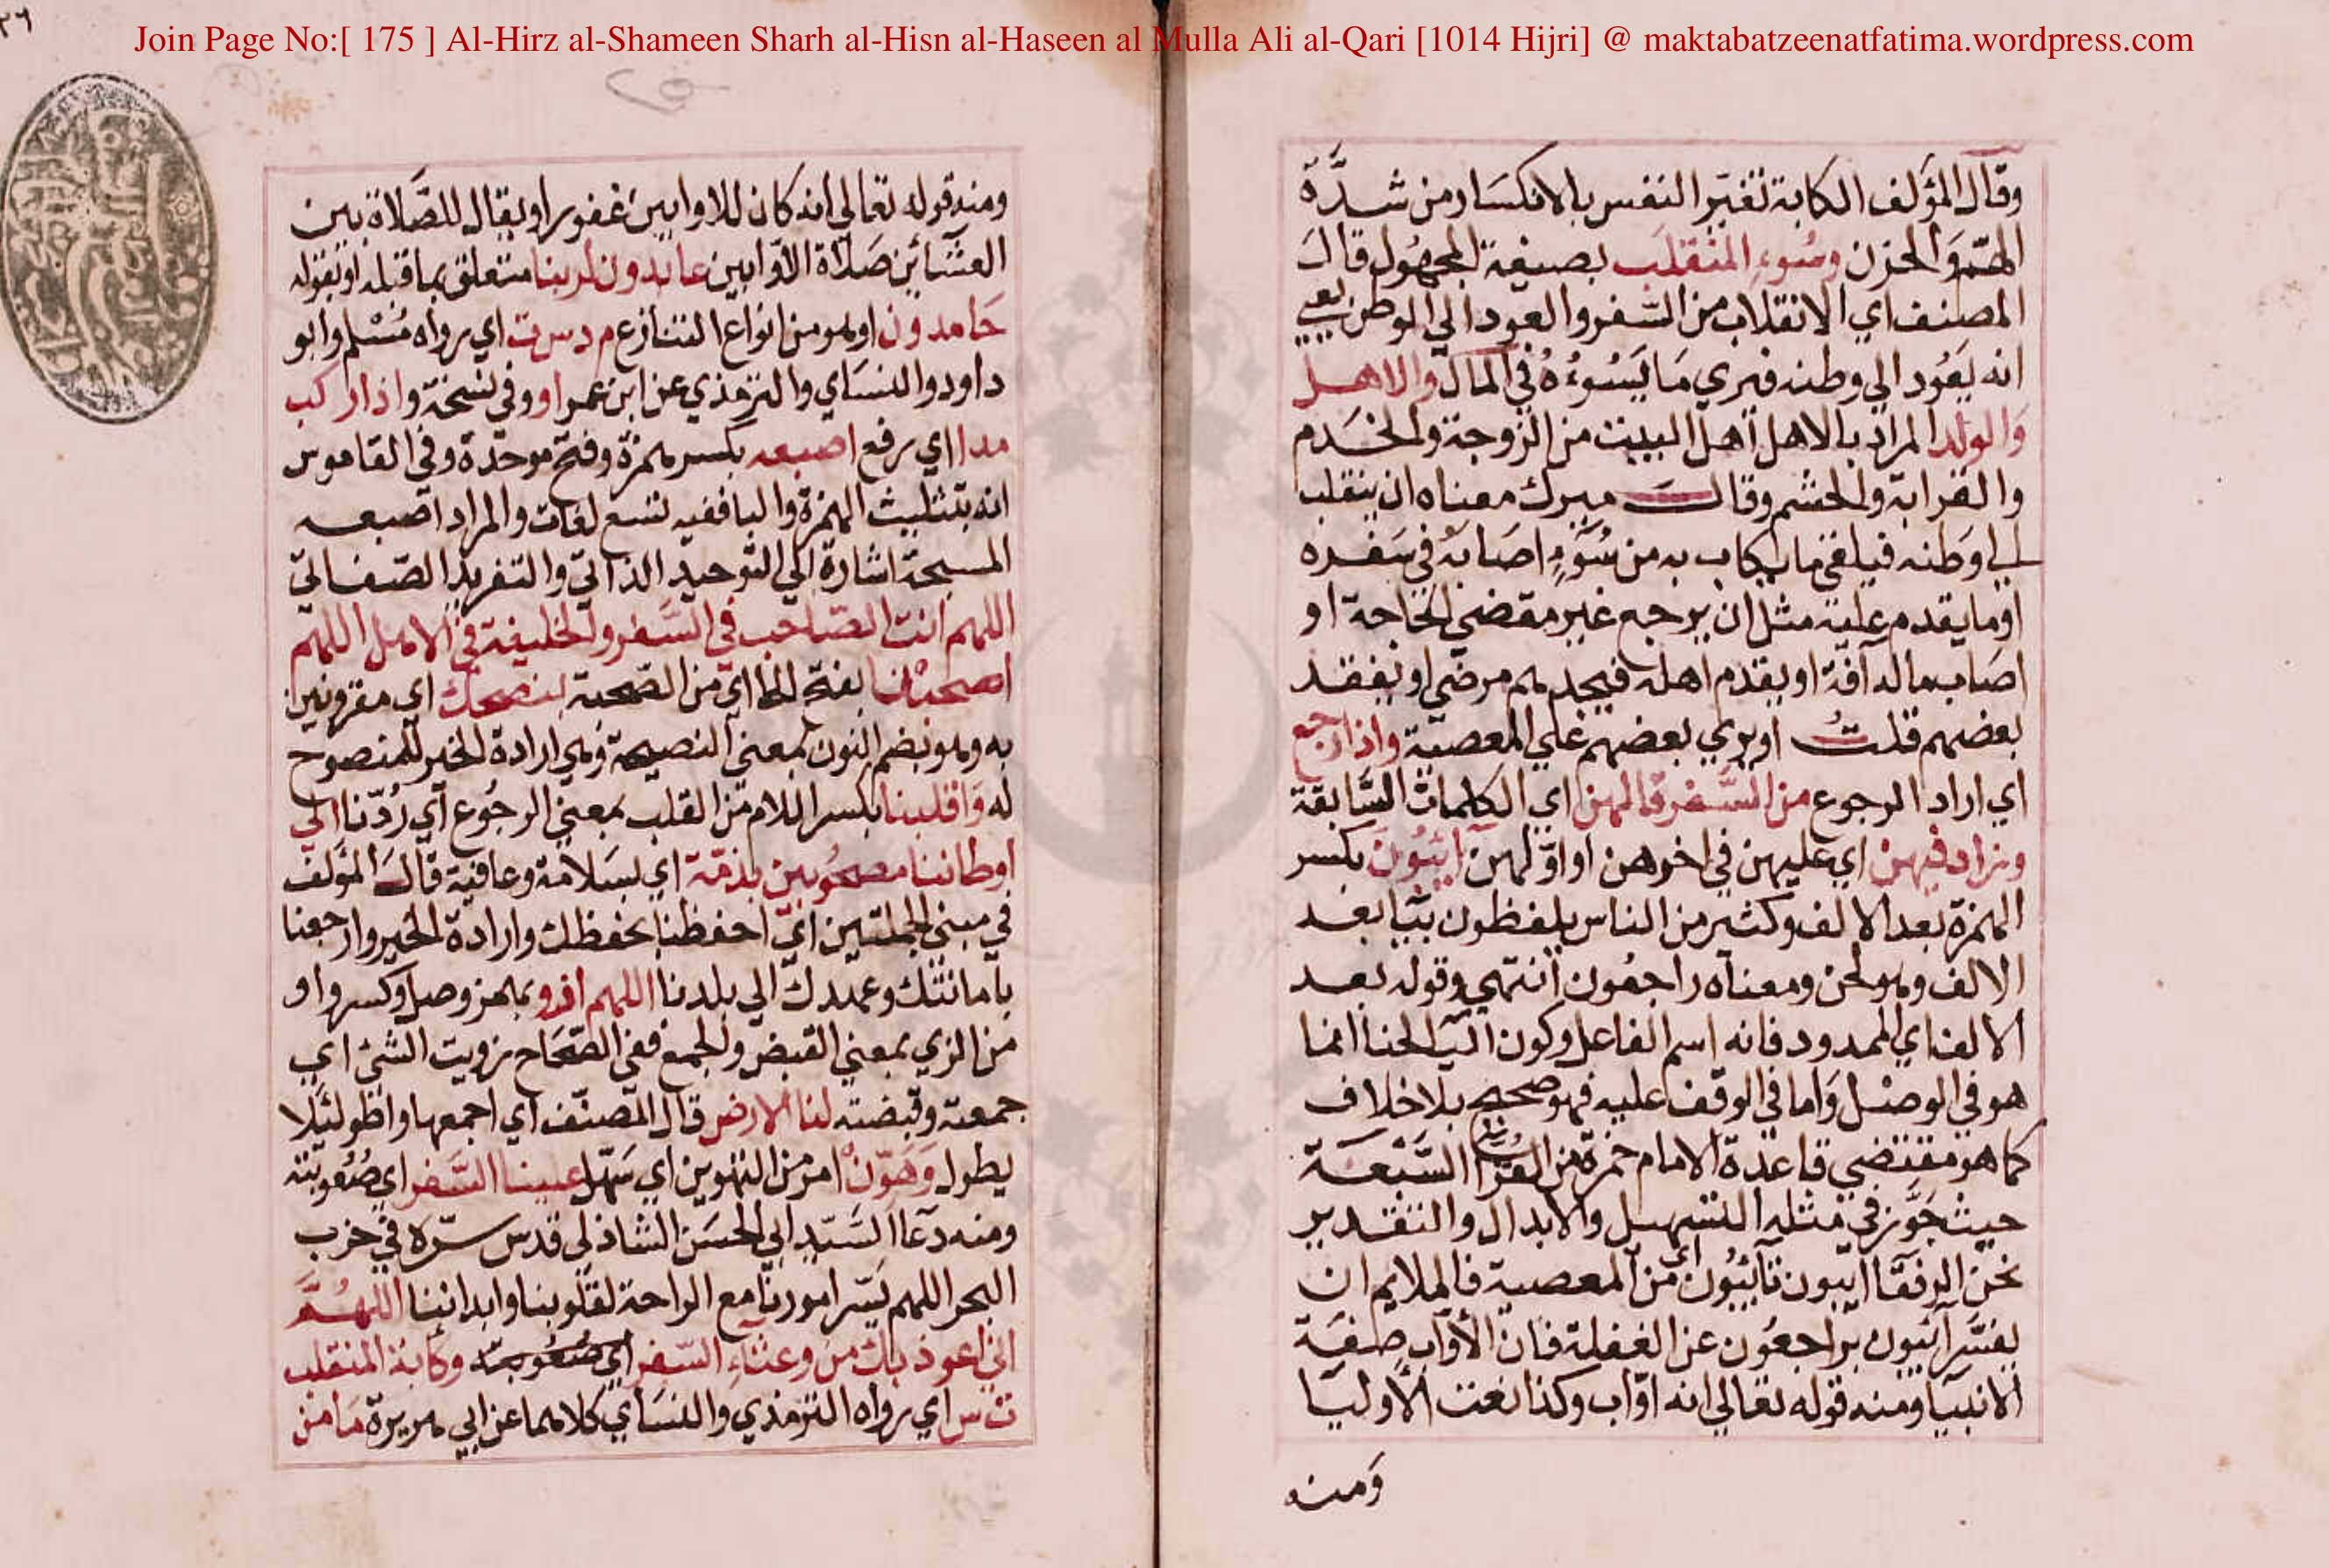 ٣٦
Join Page No:[ 175 ] Al-Hirz al-Shameen Sharh al-Hisn al-Haseen al Mulla Ali al-Qari [1014 Hijri] @ maktabatzeenatfatima.wordpress.com
وقال المؤلف الكابة تغير النفس بالانكسار من شدة
الهم والحزن وسوء المنقلب بصيغة المجهول قال
المصنف اي الانقلاب من السفر والعود الي الوطن يعني
انه يعود الي وطنه فيري ما يسوءه في المال والاهل
والولد المراد بالاهل اهل البيت من الزوجة والخدم
والقرابة والحشم وقال ميرك معناه ان ينقلب
الي وطنه فيلقي ما يكاب به من سوء اصابه في سفره
او ما يقدم عليه مثل ان يرجع غير مقضي الحاجة او
اصاب ماله آفة او يقدم اهله فيجدهم مرضي او يفقد
بعضهم قلت او يري بعضهم علي المعصية واذا رجع
اي اراد الرجوع من السفر قالهن اي الكلمات السابقة
وزاد فيهن اي عليهن في اخرهن او اولهن آئبون بكسر
الهمزة بعد الالف وكثير من الناس يلفظون بيا بعد
الالف وهو لحن ومعناه راجعون انتهي وقوله بعد
الالف اي الممدود فانه اسم الفاعل وكون اليا لحنا انما
هو في الوصل واما في الوقف عليه فهو صحيح بلا خلاف
كما هو مقتضي قاعدة الامام حمزة من القرا السبعة
حيث جوز في مثله التسهيل والابدال والتقدير
نحن الرفقا ايبون تائبون اي من المعصية فالملايم ان
يفسر آئبون براجعون عن الغفلة فان الأواب صفة
الانبيا ومنه قوله تعالي انه اواب وكذا نعت الأوليا
ومنه
ومنه قوله تعالي انه كان للاوابين غفورا ويقال للصلاة بين
العشائين صلاة الأوابين عابدون لربنا متعلق بما قبله او بقوله
حامدون او هو من انواع التنازع م د س ت اي رواه مسلم وابو
داود والنساي والترمذي عن ابن عمر او وفي نسخة واذا ركب
مد اي رفع اصبعه بكسر همزة وفتح موحدة وفي القاموس
انه بتثليث الهمزة والبا ففيه تسع لغات والمراد اصبعه
المسبحة اشارة الي التوحيد الذاتي والتفريد الصفاتي
اللهم انت الصاحب في السفر والخليفة في الاهل اللهم
اصحبنا بفتح الحا اي من الصحبة بنصحك اي مقرونين
به وهو بضم النون بمعني النصيحة وهي ارادة الخير للمنصوح
له واقلبنا بكسر اللام من القلب بمعني الرجوع اي ردنا الي
اوطاننا مصحوبين بذمة اي بسلامة وعافية قال المؤلف
في مبني الجملتين اي احفظنا بحفظك وارادة الخير وارجعنا
بامانتك وعهدك الي بلدنا اللهم ازو بهمز وصل وكسر واو
من الزي بمعني القبض والجمع ففي الصحاح زويت الشئ اي
جمعته وقبضته لنا الارض قال المصنف اي اجمعها واطو لئلا
يطول وهون امر من التهوين اي سهل علينا السفر اي صعوبته
ومنه دعا السيد ابي الحسن الشاذلي قدس سره في حزب
البحر اللهم يسر امورنا مع الراحة لقلوبنا وابداننا اللهم
اني اعوذ بك من وعثاء السفر اي صعوبته وكآبة المنقلب
ت س اي رواه الترمذي والنساي كلاهما عن ابي هريرة ما من